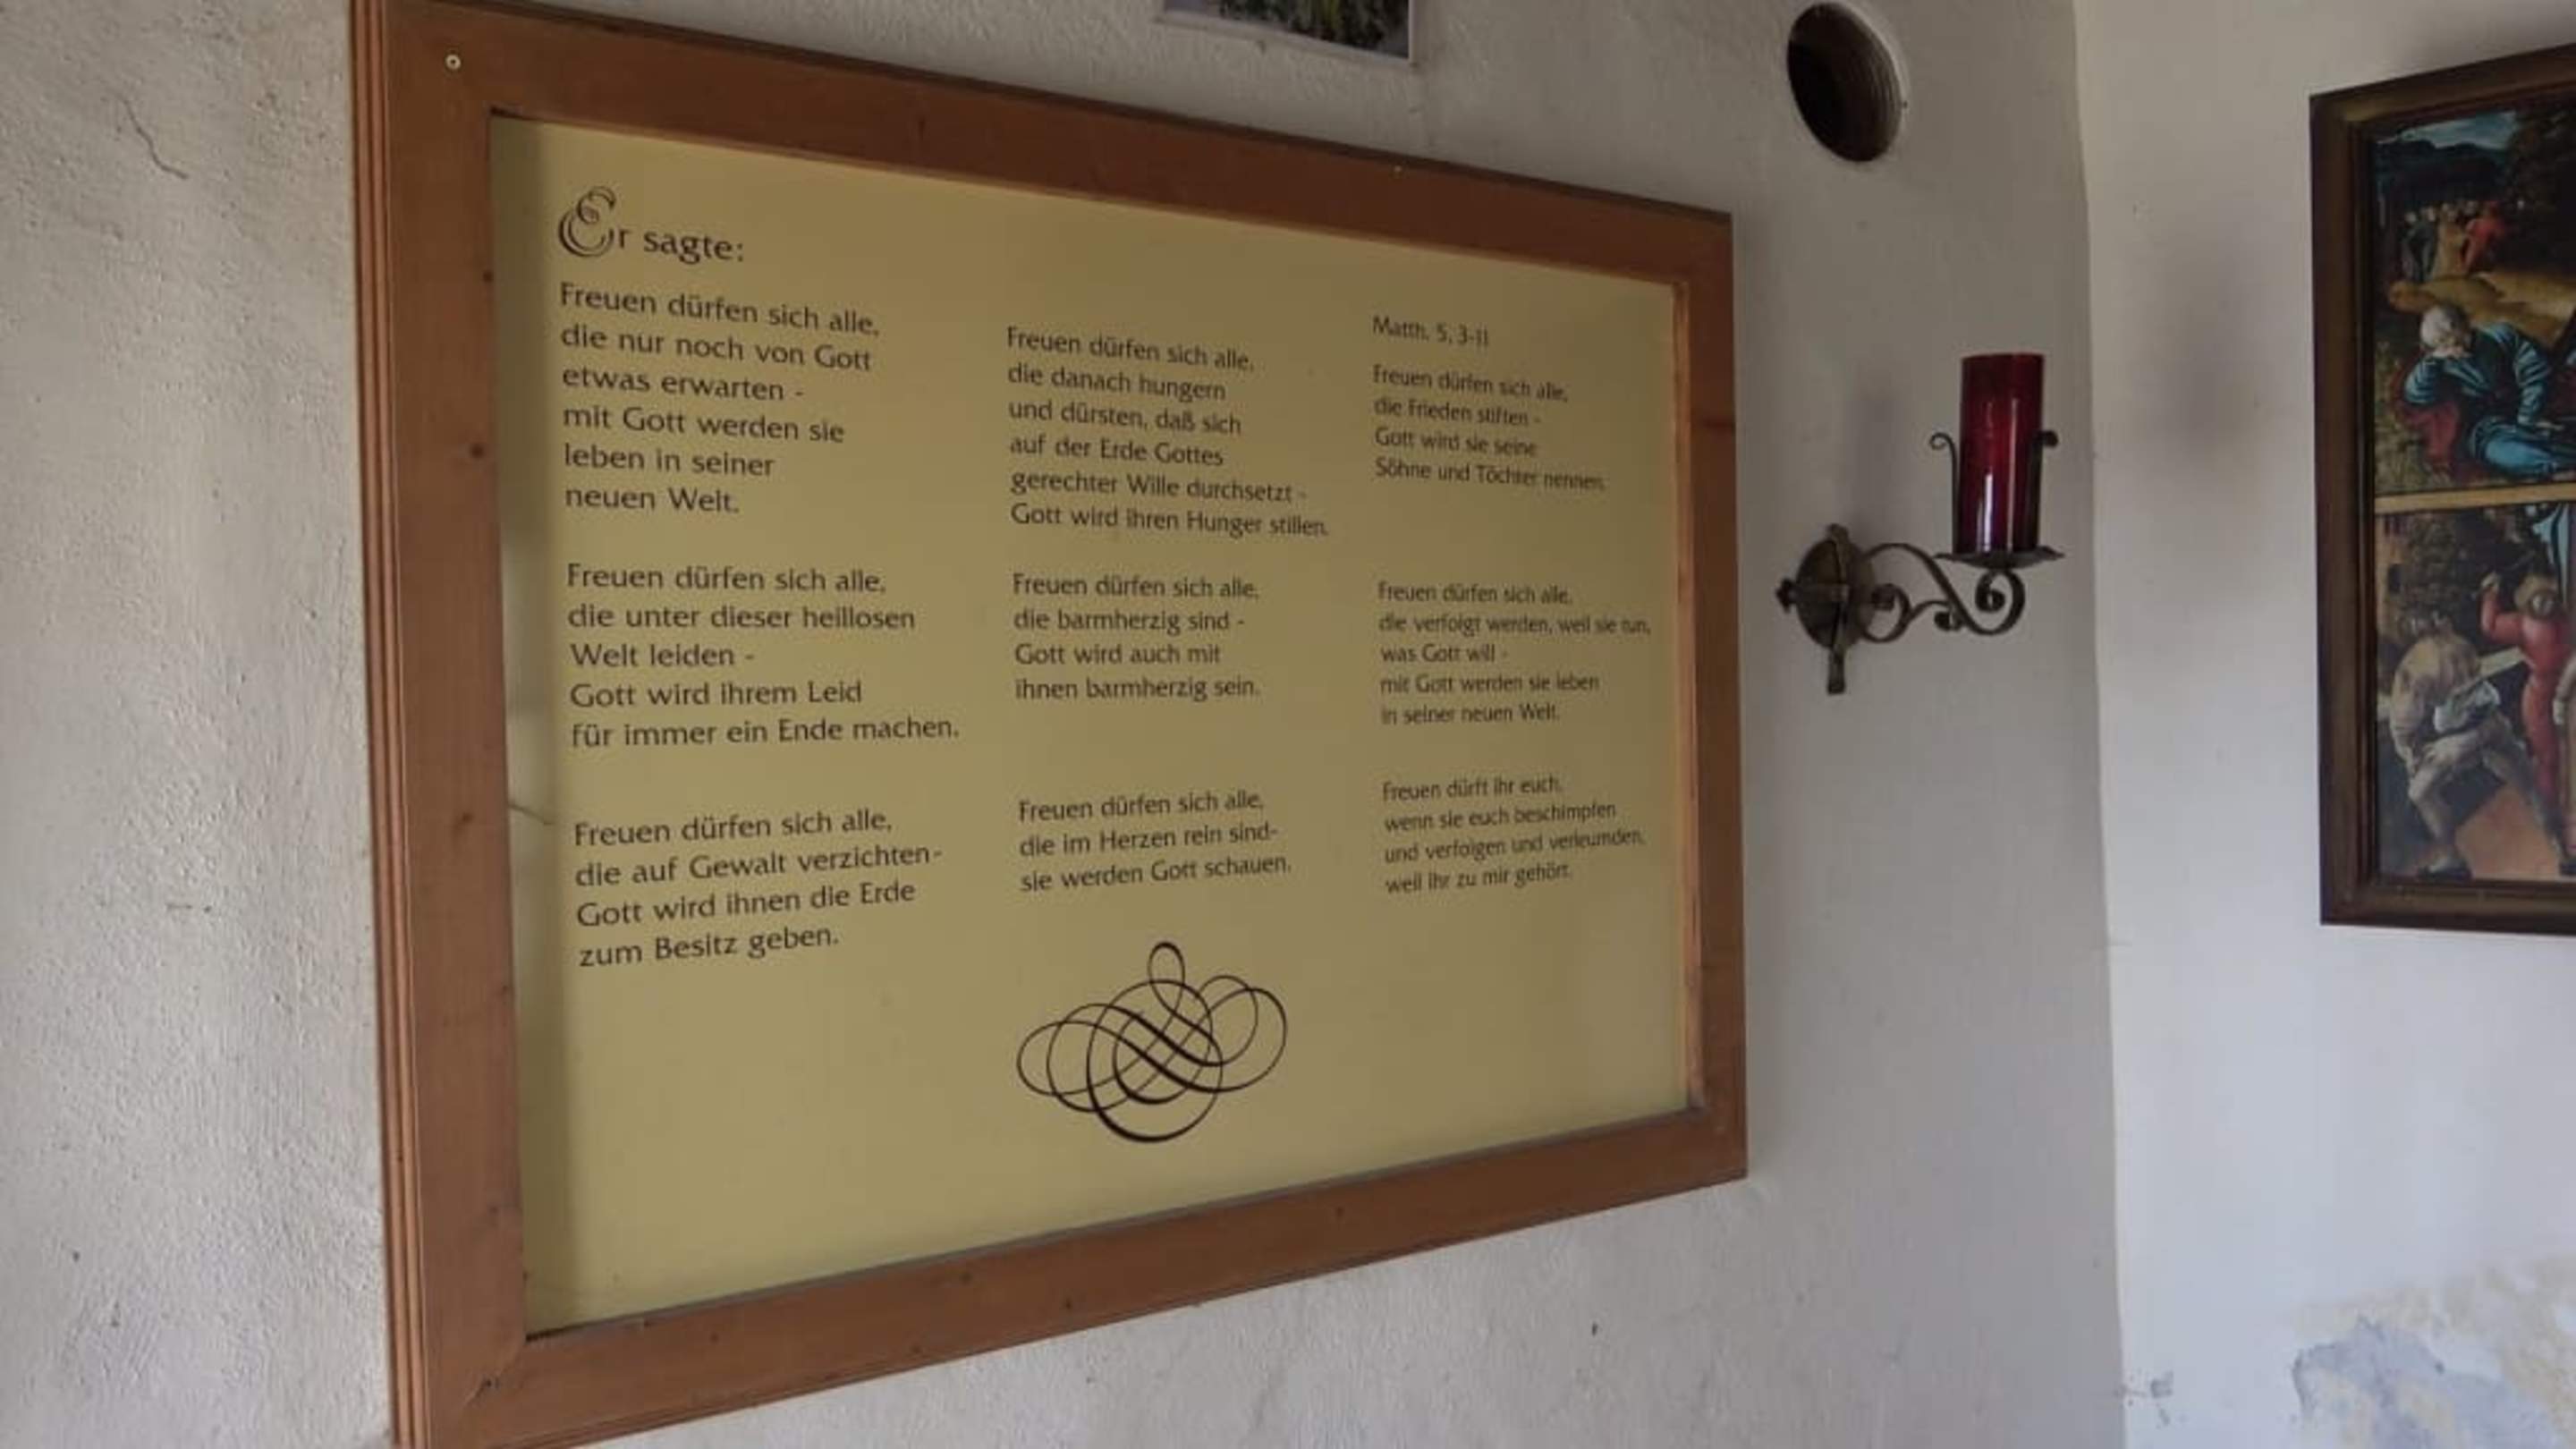 Er sagte:
Freuen dürfen sich alle,
die nur noch von Gott
etwas erwarten -
mit Gott werden sie
leben in seiner
neuen Welt.
Freuen dürfen sich alle,
die unter dieser heillosen
Welt leiden -
Gott wird ihrem Leid
für immer ein Ende machen.
Freuen dürfen sich alle,
die auf Gewalt verzichten-
Gott wird ihnen die Erde
zum Besitz geben.
Freuen dürfen sich alle,
die danach hungern
und dürsten, daß sich
auf der Erde Gottes
gerechter Wille durchsetzt -
Gott wird ihren Hunger stillen.
Freuen dürfen sich alle,
die barmherzig sind -
Gott wird auch mit
ihnen barmherzig sein.
Freuen dürfen sich alle,
die im Herzen rein sind-
sie werden Gott schauen.
Matth. 5, 3-11
Freuen dürfen sich alle,
die Frieden stiften -
Gott wird sie seine
Söhne und Töchter nennen.
Freuen dürfen sich alle,
die verfolgt werden, weil sie tun,
was Gott will -
mit Gott werden sie leben
in seiner neuen Welt.
Freuen dürft ihr euch,
wenn sie euch beschimpfen
und verfolgen und verleumden,
weil ihr zu mir gehört.